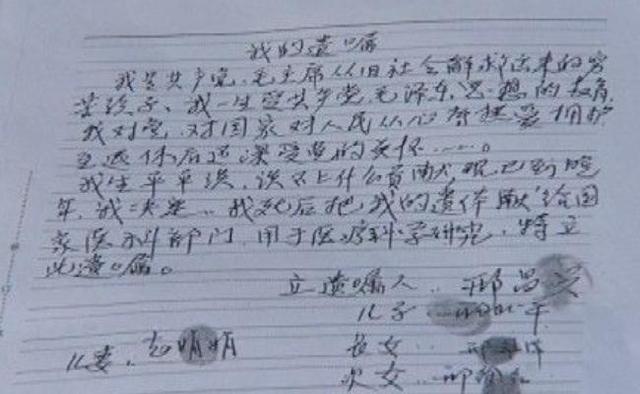 我的遗嘱
我是共产党、毛主席从旧社会解救出来的穷
苦孩子、我一生受共产党毛泽东思想的教育
我对党、对国家对人民从心存热爱拥护
退休后还深受党的关怀……。
我生平平淡、谈不上什么贡献、现已到晚
年、我决定、我死后把我的遗体献给国
家医科部门、用于医疗科学研究、特立
此遗嘱。
立遗嘱人：邢昌
儿子
儿妻、赵娟娟
长女
次女：邢